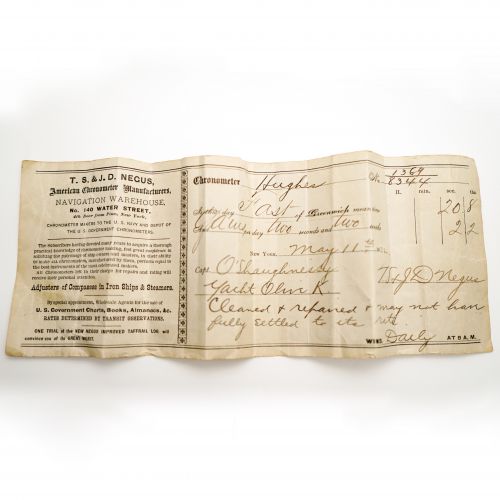 T. S. & J. D. NEGUS,
American Chronometer Manufacturers,
NAVIGATION WAREHOUSE,
No. 140 WATER STREET,
4th Door from Pine, New York,
CHRONOMETER MAKERS TO THE U. S. NAVY AND DEPOT OF
THE U. S. GOVERNMENT CHRONOMETERS.
The Subscribers having devoted many years to acquire a thorough
practical knowledge of chronometer making, feel great confidence in
soliciting the patronage of ship owners and masters, in their ability
the best instruments of the most celebrated makers.
All Chronometers left in their charge for repairs and rating will
receive their personal attention.
Adjusters of Compasses in Iron Ships & Steamers.
By special appointment, Wholesale Agents for the sale of
U. S. Government Charts, Books, Almanacs, &c.
RATES DETERMINED BY TRANSIT OBSERVATIONS.
ONE TRIAL of the NEW NEGUS IMPROVED TAFFRAIL LOG will
convince you of its GREAT MERIT.
Chronometer Hughes No. 1369
8344
H. MIN. SEC. 10ths
Fast of Greenwich mean time 20 8
day two seconds and two 2 2
NEW YORK, May 11th
Capt. O'Shaughnessy T S & J D Negus
Yacht
Cleaned & repaired & may not have
fully settled to its rate.
WIND Daily AT 9 A. M.